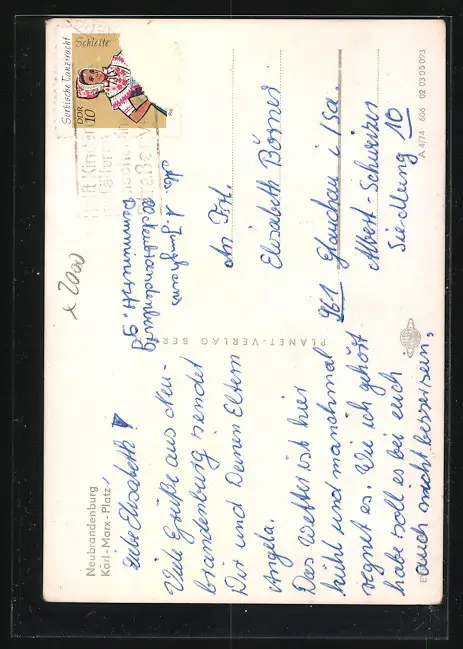 Neubrandenburg
Karl-Marx-Platz
Liebe Elisabeth!
Viele Grüße aus Neu-
brandenburg sendet
Dir und Deinen Eltern
Angela.
Das Wetter ist hier
kühl und manchmal
regnet es. Wie ich gehört
habe soll es bei euch
auch nicht besser sein.
PLANET-VERLAG BERLIN
Sorbische Tanztracht
Schleife
DDR 10
Abs. A. Junghans
20 Neubrandenburg
Demminerstr. 9
An Frl.
Elisabeth Börner
961 Glauchau i/Sa.
Albert-Schweitzer
Siedlung 10
A 4/74 606 02 03 05 093
x 2000